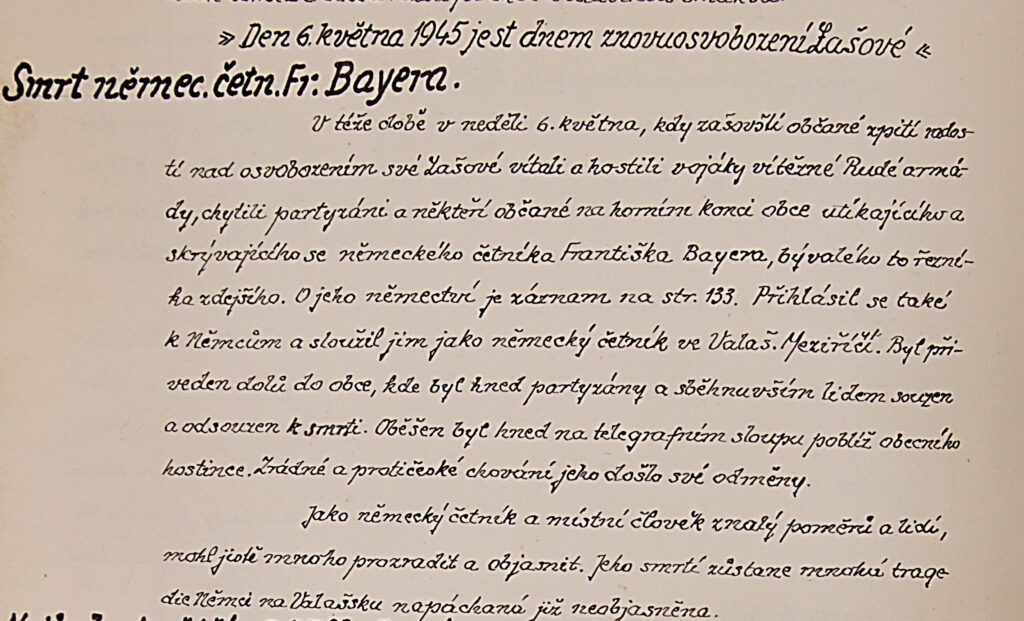 » Den 6. května 1945 jest dnem znovuosvobození Zašové «
Smrt němec. četn. Fr. Bayera.
V téže době v neděli 6. května, kdy zašovští občané zpití rados-
tí nad osvobozením své Zašové vítali a hostili vojáky vítězné Rudé armá-
dy, chytili partyzáni a někteří občané na horním konci obce utíkajícího a
skrývajícího se německého četníka Františka Bayera, bývalého to řezní-
ka zdejšího. O jeho němectví je záznam na str. 133. Přihlásil se také
k Němcům a sloužil jim jako německý četník ve Valaš. Meziříčí. Byl při-
veden dolů do obce, kde byl hned partyzány a sběhnuvším lidem souzen
a odsouzen k smrti. Oběšen byl hned na telegrafním sloupu poblíž obecného
hostince. Zrádné a protičeské chování jeho došlo své odměny.
Jako německý četník a místní člověk znalý poměrů a lidí,
mohl jistě mnoho prozradit a objasnit. Jeho smrtí zůstane mnohá trage
die Němci na Valašsku napáchaná již neobjasněna.